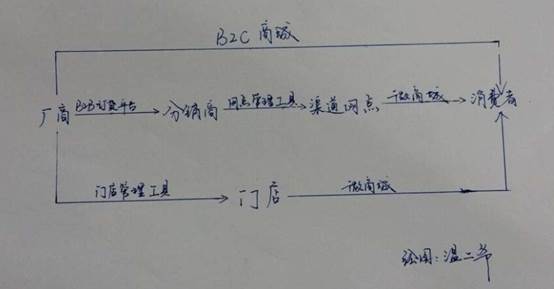 B2C 商城
厂商 B2B订货平台 分销商 网点管理工具 渠道网点 微商城 消费者
门店管理工具 门店 微商城
绘图：温二爷